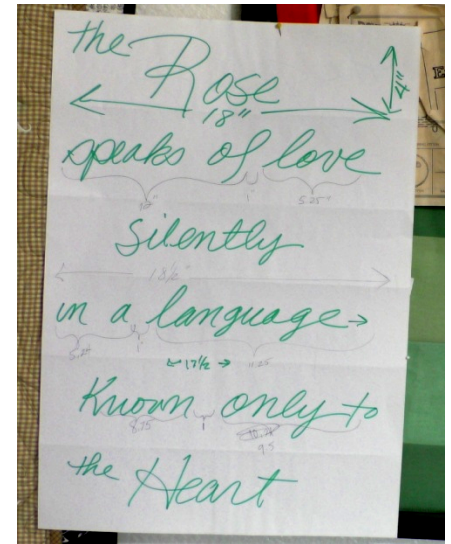 the
Rose
4"
18"
speaks of love
1"
5.25"
Silently
18½"
in a language
5.25
1
17½
11.25
Known only to
8.75
1
9.5
the Heart